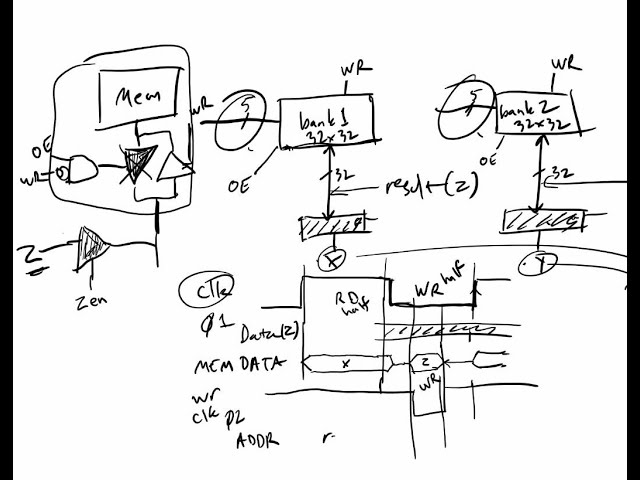 WR
WR
Mem
WR
5
bank 1
32x32
5
bank 2
32x32
OE
WR
OE
OE
32
result (z)
32
Z
Zen
X
Y
Clk
φ1
RD half
WR half
Data(z)
MEM DATA
X
Z
WR
clk φ2
WR
ADDR
r-